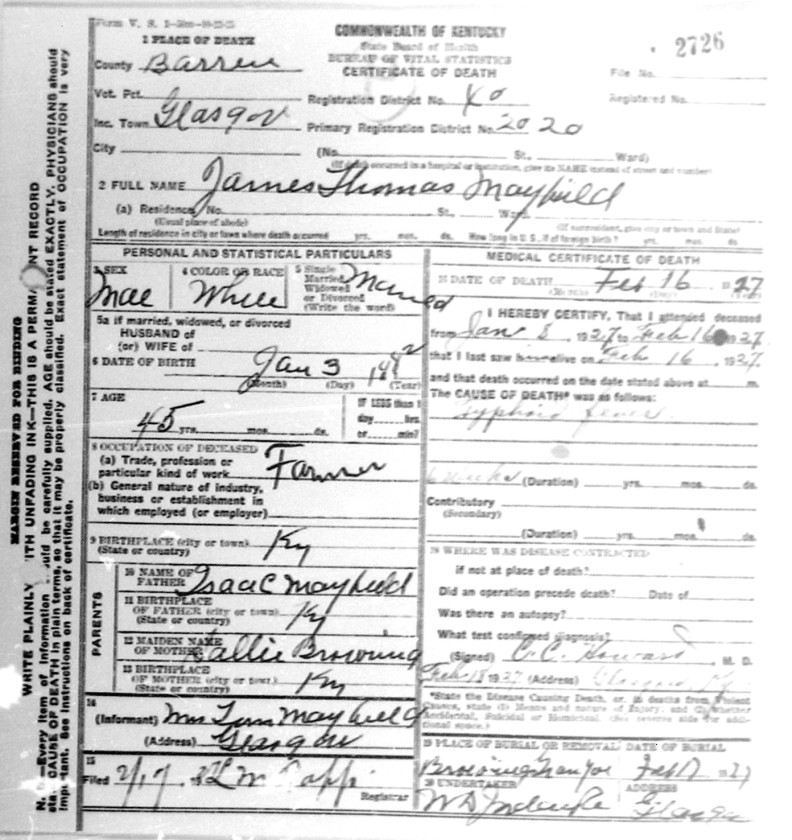 Form V. S. 1
COMMONWEALTH OF KENTUCKY
State Board of Health
BUREAU OF VITAL STATISTICS
CERTIFICATE OF DEATH
2726
File No.
Registered No.
1 PLACE OF DEATH
County Barren
Vot. Pct.
Registration District No. 40
Inc. Town Glasgow
Primary Registration District No. 2020
City
(No. St., Ward)
(If death occurred in a hospital or institution, give its NAME instead of street and number)
2 FULL NAME James Thomas Mayfield
(a) Residence, No. St., Ward
(Usual place of abode) (If nonresident, give city or town and State)
Length of residence in city or town where death occurred yrs. mos. ds. How long in U. S., if of foreign birth? yrs. mos. ds.
PERSONAL AND STATISTICAL PARTICULARS
3 SEX Mae
4 COLOR OR RACE White
5 Single Married Widowed or Divorced (Write the word) Married
5a If married, widowed, or divorced
HUSBAND of
(or) WIFE of
6 DATE OF BIRTH Jan 3
(Month) (Day) (Year)
7 AGE
45 yrs. mos. ds.
IF LESS than 1
day hrs.
or min?
8 OCCUPATION OF DECEASED
(a) Trade, profession or
particular kind of work Farmer
(b) General nature of industry,
business or establishment in
which employed (or employer)
9 BIRTHPLACE (city or town) Ky
(State or country)
PARENTS
10 NAME OF
FATHER Isaac Mayfield
11 BIRTHPLACE
OF FATHER (city or town) Ky
(State or country)
12 MAIDEN NAME
OF MOTHER Sallie Browning
13 BIRTHPLACE
OF MOTHER (city or town) Ky
(State or country)
14
(Informant) Mrs Tom Mayfield
(Address) Glasgow
15
Filed 2/17
Registrar
MEDICAL CERTIFICATE OF DEATH
15 DATE OF DEATH Feb 16 1927
(Month) (Day) (Year)
I HEREBY CERTIFY, That I attended deceased
from Jan 8, 1927 to Feb 16 1927
that I last saw h alive on Feb 16, 1927.
and that death occurred on the date stated above at m.
The CAUSE OF DEATH* was as follows:
Typhoid fever
weeks (Duration) yrs. mos. ds.
Contributory
(Secondary)
(Duration) yrs. mos. ds.
WHERE WAS DISEASE CONTRACTED
if not at place of death?
Did an operation precede death? Date of
Was there an autopsy?
What test confirmed diagnosis?
(Signed) C. C. Howard M. D.
Feb 18 1927 (Address) Ky
*State the Disease Causing Death, or, in deaths from Violent
Causes, state (1) Means and nature of Injury; and (2) whether
Accidental, Suicidal or Homicidal. (See reverse side for addi-
tional space.)
19 PLACE OF BURIAL OR REMOVAL DATE OF BURIAL
Browning Feb 17 1927
20 UNDERTAKER ADDRESS
Glasgow
MARGIN RESERVED FOR BINDING
WRITE PLAINLY WITH UNFADING INK—THIS IS A PERMANENT RECORD
N. B.—Every item of information should be carefully supplied. AGE should be stated EXACTLY. PHYSICIANS should
state CAUSE OF DEATH in plain terms, so that it may be properly classified. Exact statement of OCCUPATION is very
important. See instructions on back of certificate.